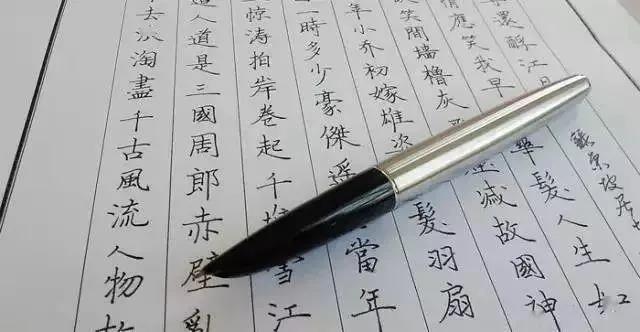 去浪淘盡千古風流人物故
人道是三國周郎赤壁亂
惊涛拍岸卷起千堆雪江
一時多少豪傑遥當年
年小乔初嫁雄髮羽扇
笑間墙櫓灰滅故國神
情應笑我早華髮人生如
還酹江月
蘇東坡